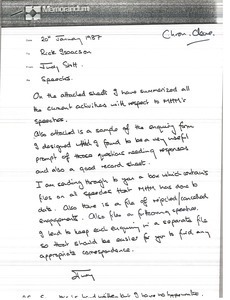 Memorandum
Chron. Close.
20th January 1987
To Rick Isaacson
From Judy Stott.
Re Speeches.
On the attached sheets I have summarized all
the current activities with respect to MHM's
speeches.
Also attached is a sample of the enquiry form
I designed which I found to be a very useful
prompt of those questions needing responses
and also a good record sheet.
I am sending through to you a box which contains
files on all speeches that MHM has done to
date. Also there is a file of rejected/canceled
engagements. Also files on forthcoming speeches.
I tend to keep each enquiry in a separate file
so that should be easier for you to find any
appropriate correspondence.
Judy